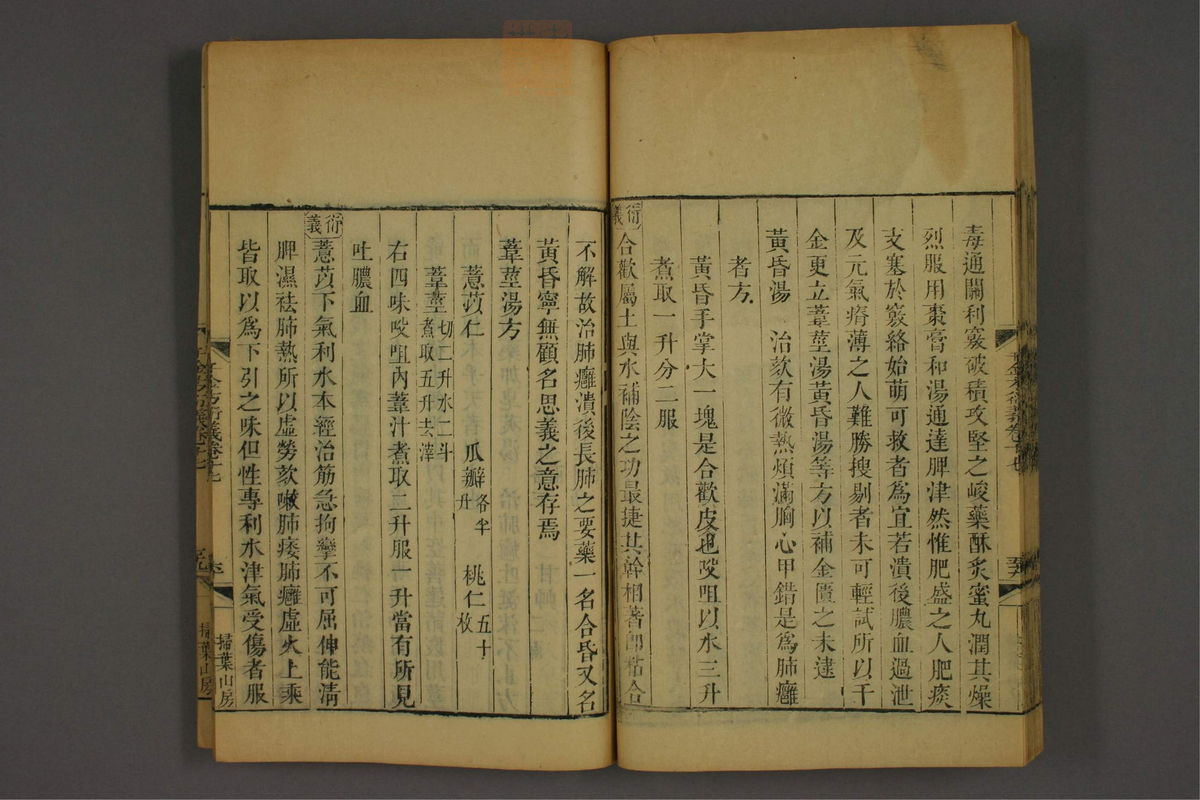 毒通關利竅破積攻堅之峻藥酥炙蜜丸潤其燥
烈服用棗膏和湯通達脾津然惟肥盛之人肥痰
支塞於竅絡始萌可救者爲宜若潰後膿血過泄
及元氣瘠薄之人難勝搜剔者未可輕試所以千
金更立葦莖湯黃昏湯等方以補金匱之未逮
黃昏湯 治欬有微熱煩滿胸心甲錯是爲肺癰
者方
黃昏手掌大一塊是合歡皮也㕮咀以水三升
煮取一升分二服
衍義 合歡屬土與水補陰之功最捷其幹相著即粘合
不解故治肺癰潰後長肺之要藥一名合昏又名
黃昏寧無顧名思義之意存焉
葦莖湯方
薏苡仁 瓜瓣各半升 桃仁五十枚
葦莖切二升水二斗煮取五升去滓
右四味㕮咀內葦汁煮取二升服一升當有所見
吐膿血
衍義 薏苡下氣利水本經治筋急拘攣不可屈伸能清
脾濕祛肺熱所以虛勞欬嗽肺痿肺癰虛火上乘
皆取以爲下引之味但性專利水津氣受傷者服
千金方衍義卷十七
掃葉山房